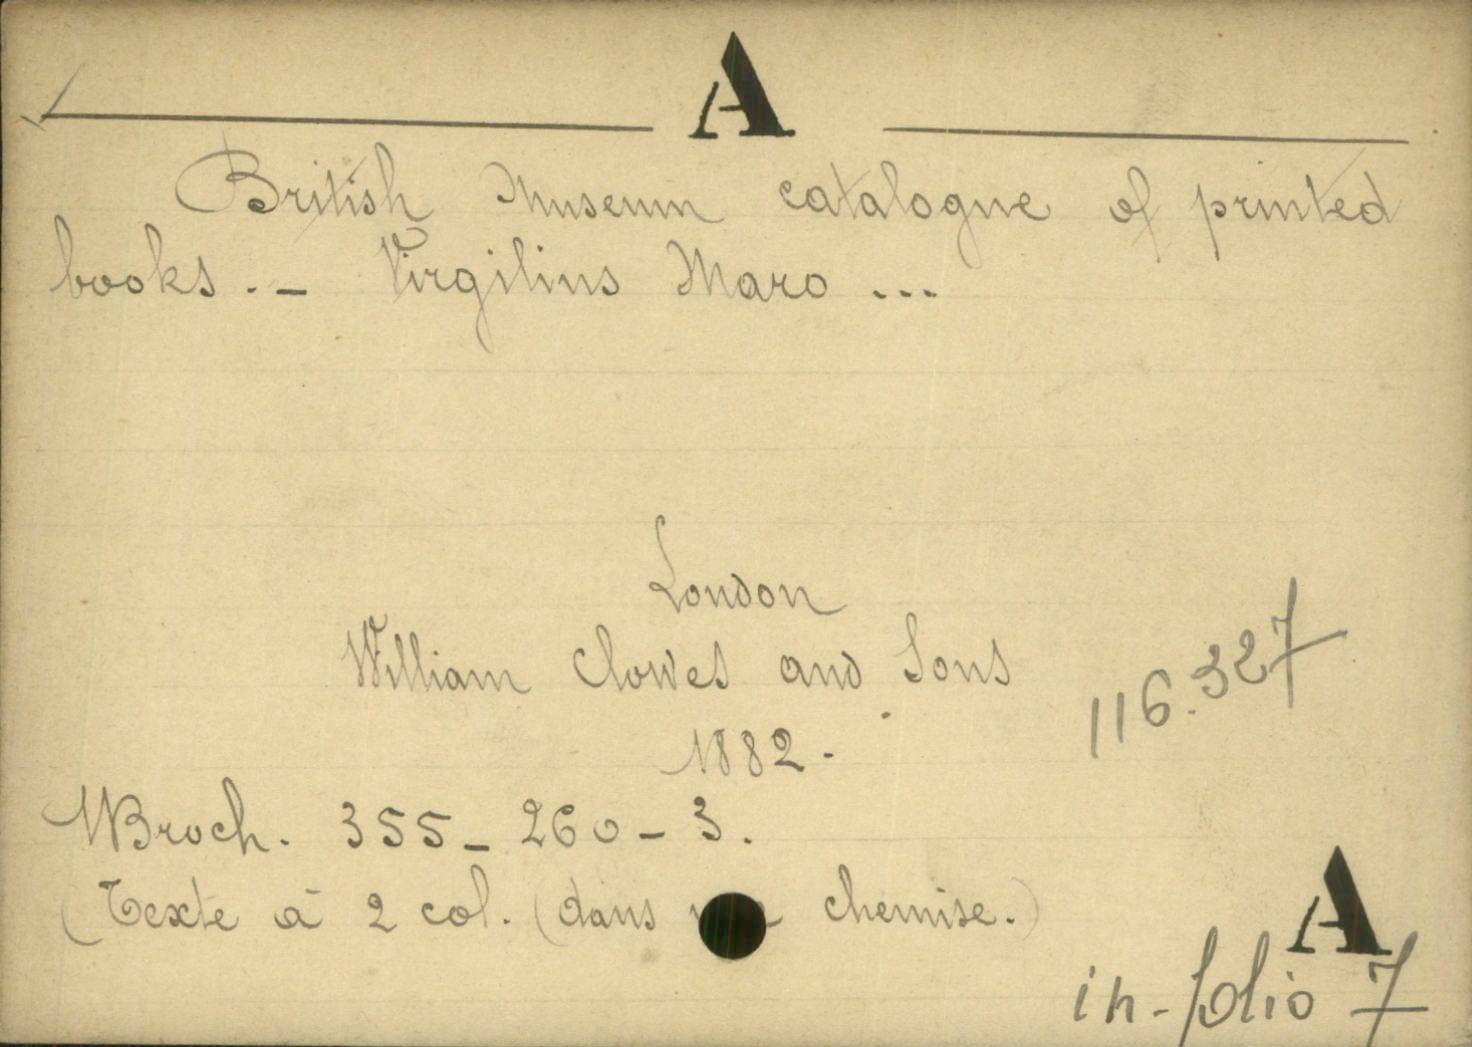 A
British Museum catalogue of printed
books. – Virgilius Maro ...
London
William Clowes and Sons
116.327
1882.
1 Broch. 355 – 260 – 3.
(Texte à 2 col. (dans chemise.)
A
in-folio 7